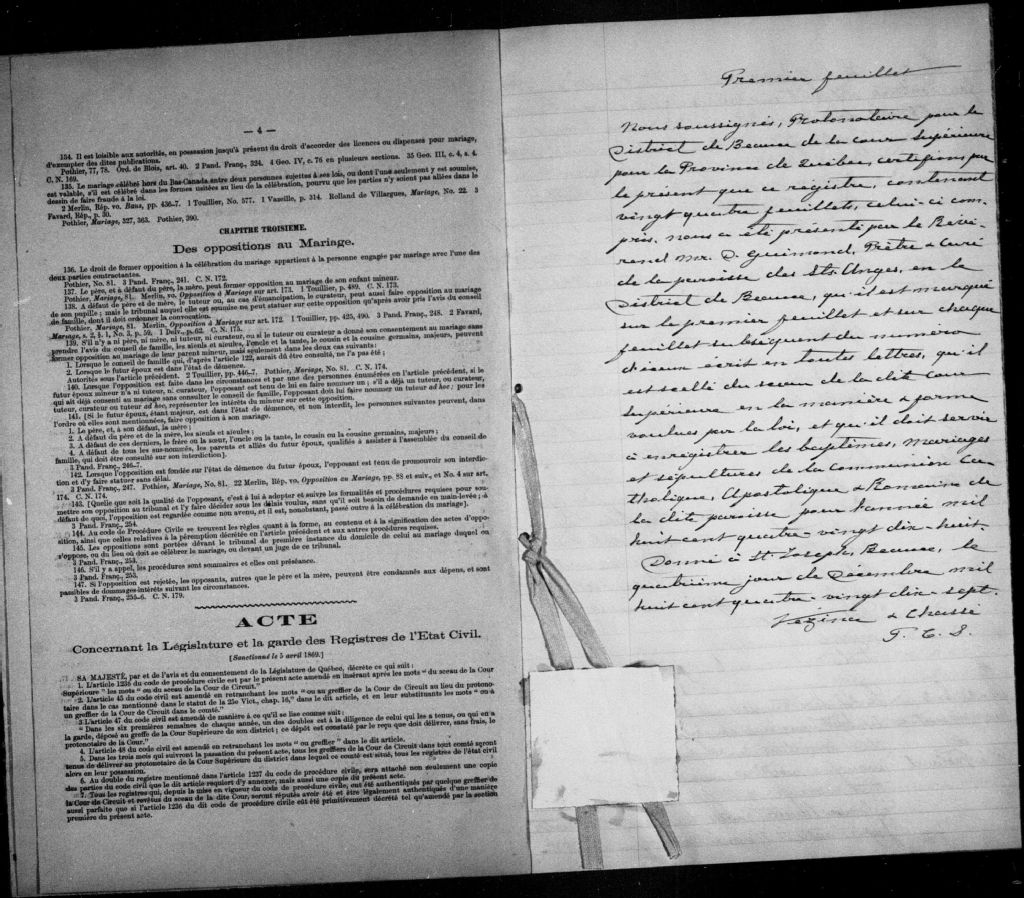 — 4 —
134. Il est loisible aux autorités, en possession jusqu'à présent du droit d'accorder des licences ou dispenses pour mariage,
d'exempter des dites publications.
Pothier, 77, 78. Ord. de Blois, art. 40. 2 Pand. Franç., 324. 4 Geo. IV, c. 76 en plusieurs sections. 35 Geo. III, c. 4, s. 4.
C. N. 169.
135. Le mariage célébré hors du Bas-Canada entre deux personnes sujettes à ses lois, ou dont l'une seulement y est soumise,
est valable, s'il est célébré dans les formes usitées au lieu de la célébration, pourvu que les parties n'y soient pas allées dans le
dessin de faire fraude à la loi.
2 Merlin, Rép. vo. Bans, pp. 436-7. 1 Touillier, No. 577. 1 Vazeille, p. 314. Rolland de Villargues, Mariage, No. 22. 3
Favard, Rép., p. 30.
Pothier, Mariage, 327, 363. Pothier, 390.
CHAPITRE TROISIEME.
Des oppositions au Mariage.
136. Le droit de former opposition à la célébration du mariage appartient à la personne engagée par mariage avec l'une des
deux parties contractantes.
Pothier, No. 81. 3 Pand. Franç., 241. C. N. 172.
137. Le père, et à défaut du père, la mère, peut former opposition au mariage de son enfant mineur.
Pothier, Mariage, 81. Merlin, vo. Opposition à Mariage sur art. 173. 1 Touillier, p. 489. C. N. 173.
138. A défaut de père et de mère, le tuteur ou, au cas d'émancipation, le curateur, peut aussi faire opposition au mariage
de son pupille; mais le tribunal auquel elle est soumise ne peut statuer sur cette opposition qu'après avoir pris l'avis du conseil
de famille, dont il doit ordonner la convocation.
Pothier, Mariage, 81. Merlin, Opposition à Mariage sur art. 172. 1 Touillier, pp. 425, 490. 3 Pand. Franç., 248. 2 Favard,
Mariage, s. 2, § 1, No. 3, p. 59. 1 Delv., p. 62. C. N. 175.
139. S'il n'y a ni père, ni mère, ni tuteur, ni curateur, ou si le tuteur ou curateur a donné son consentement au mariage sans
prendre l'avis du conseil de famille, les aïeuls et aïeules, l'oncle et la tante, le cousin et la cousine germains, majeurs, peuvent
former opposition au mariage de leur parent mineur, mais seulement dans les deux cas suivants:
1. Lorsque le conseil de famille qui, d'après l'article 122, aurait dû être consulté, ne l'a pas été;
2. Lorsque le futur époux est dans l'état de démence.
Autorités sous l'article précédent. 2 Touillier, pp. 446-7. Pothier, Mariage, No. 81. C. N. 174.
140. Lorsque l'opposition est faite dans les circonstances et par une des personnes énumérées en l'article précédent, si le
futur époux mineur n'a ni tuteur, ni curateur, l'opposant est tenu de lui en faire nommer un; s'il a déjà un tuteur, ou curateur,
qui ait déjà consenti au mariage sans consulter le conseil de famille, l'opposant doit lui faire nommer un tuteur ad hoc; pour les
tuteur, curateur ou tuteur ad hoc, représenter les intérêts du mineur sur cette opposition.
141. [Si le futur époux, étant majeur, est dans l'état de démence, et non interdit, les personnes suivantes peuvent, dans
l'ordre où elles sont mentionnées, faire opposition à son mariage.
1. Le père, et, à son défaut, la mère;
2. A défaut du père et de la mère, les aïeuls et aïeules;
3. A défaut de ces derniers, le frère ou la sœur, l'oncle ou la tante, le cousin ou la cousine germains, majeurs;
4. A défaut de tous les sus-nommés, les parents et alliés du futur époux, qualifiés à assister à l'assemblée du conseil de
famille, qui doit être consulté sur son interdiction]
3 Pand. Franç., 246-7.
142. Lorsque l'opposition est fondée sur l'état de démence du futur époux, l'opposant est tenu de promouvoir son interdic-
tion et d'y faire statuer sans délai.
3 Pand. Franç., 247. Pothier, Mariage, No. 81. 22 Merlin, Rép. vo, Opposition au Mariage, pp. 88 et suiv., et No. 4 sur art.
174. C. N. 174.
143. [Quelle que soit la qualité de l'opposant, c'est à lui à adopter et suivre les formalités et procédures requises pour sou-
mettre son opposition au tribunal et l'y faire décider sous les délais voulus, sans qu'il soit besoin de demande en main-levée; à
défaut de quoi, l'opposition est regardée comme non avenu, et il est, nonobstant, passé outre à la célébration du mariage].
3 Pand. Franç., 254.
144. Au code de Procédure Civile se trouvent les règles quant à la forme, au contenu et à la signification des actes d'oppo-
sition, ainsi que celles relatives à la péremption décrétée en l'article précédent et aux autres procédures requises.
145. Les oppositions sont portées devant le tribunal de première instance du domicile de celui au mariage duquel on
s'oppose, ou du lieu où doit se célébrer le mariage, ou devant un juge de ce tribunal.
3 Pand. Franç., 253.
146. S'il y a appel, les procédures sont sommaires et elles ont préséance.
3 Pand. Franç., 253.
147. Si l'opposition est rejetée, les opposants, autres que le père et la mère, peuvent être condamnés aux dépens, et sont
passibles de dommages-intérêts suivant les circonstances.
3 Pand. Franç., 255-6. C. N. 179.
ACTE
Concernant la Législature et la garde des Registres de l'Etat Civil.
[Sanctionné le 5 avril 1869.]
SA MAJESTÉ, par et de l'avis et du consentement de la Législature de Québec, décrète ce qui suit:
1. L'article 1236 du code de procédure civile est par le présent acte amendé en insérant après les mots "du sceau de la Cour
Supérieure" les mots "ou du sceau de la Cour de Circuit."
2. L'article 45 du code civil est amendé en retranchant les mots "ou au greffier de la Cour de Circuit au lieu du protono-
taire dans le cas mentionné dans le statut de la 25e Vict., chap. 16," dans le dit article, et en leur substituants les mots "ou à
un greffier de la Cour de Circuit dans le comté."
3. L'article 47 du code civil est amendé de manière à ce qu'il se lise comme suit:
"Dans les six premières semaines de chaque année, un des doubles est à la diligence de celui qui les a tenus, ou qui en a
la garde, déposé au greffe de la Cour Supérieure de son district; ce dépôt est constaté par le reçu que doit délivrer, sans frais, le
protonotaire de la Cour."
4. L'article 48 du code civil est amendé en retranchant les mots "ou greffier" dans le dit article.
5. Dans les trois mois qui suivront la passation du présent acte, tous les greffiers de la Cour de Circuit dans tout comté seront
tenus de délivrer au protonotaire de la Cour Supérieure du district dans lequel ce comté est situé, tous les registres de l'état civil
alors en leur possession.
6. Au double du registre mentionné dans l'article 1237 du code de procédure civile, sera attaché non seulement une copie
des parties du code civil que le dit article requiert d'y annexer, mais aussi une copie du présent acte.
7. Tous les registres qui, depuis la mise en vigueur du code de procédure civile, ont été authentiqués par quelque greffier de
la Cour de Circuit et revêtus du sceau de la dite Cour, seront réputés avoir été et être légalement authentiqués d'une manière
aussi parfaite que si l'article 1236 du dit code de procédure civile eût été primitivement décrété tel qu'amendé par la section
première du présent acte.
Premier feuillet
Nous soussignés, Protonotaire pour le
District de Beauce de la cour Supérieure
pour la Province de Québec, certifions par
le présent que ce registre, contenant
vingt quatre feuillets, celui-ci com-
pris, nous a été présenté par le Révé-
rend Mr. D. Guimond, Prêtre & Curé
de la paroisse des Sts. Anges, en le
District de Beauce, qu'il est marqué
sur le premier feuillet et sur chaque
feuillet subséquent du numéro
d'iceux écrit en toutes lettres, qu'il
est scellé du sceau de la dite Cour
Supérieure en la manière & forme
voulues par la loi, et qu'il doit servir
à enregistrer les baptêmes, mariages
et sépultures de la communion Ca-
tholique, Apostolique & Romaine de
la dite paroisse pour l'année mil
huit cent quatre-vingt dix-huit.
Donné à St. Joseph, Beauce, le
quatrième jour de Décembre mil
huit cent quatre-vingt dix-sept.
Vézina & Chassé
P. C. S.